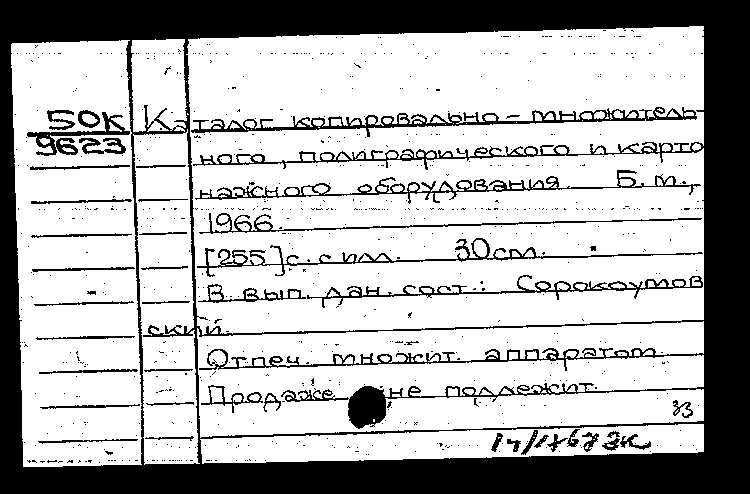 50К Каталог копировально-множитель-
9623 ного, полиграфического и карто
нажного оборудования Б.м.,
1966.
[255]с. с илл. 30см.
В вып. дан. сост.: Сорокоумов
ский.
Отпеч. множит. аппаратом
Продаже не подлежит.
33